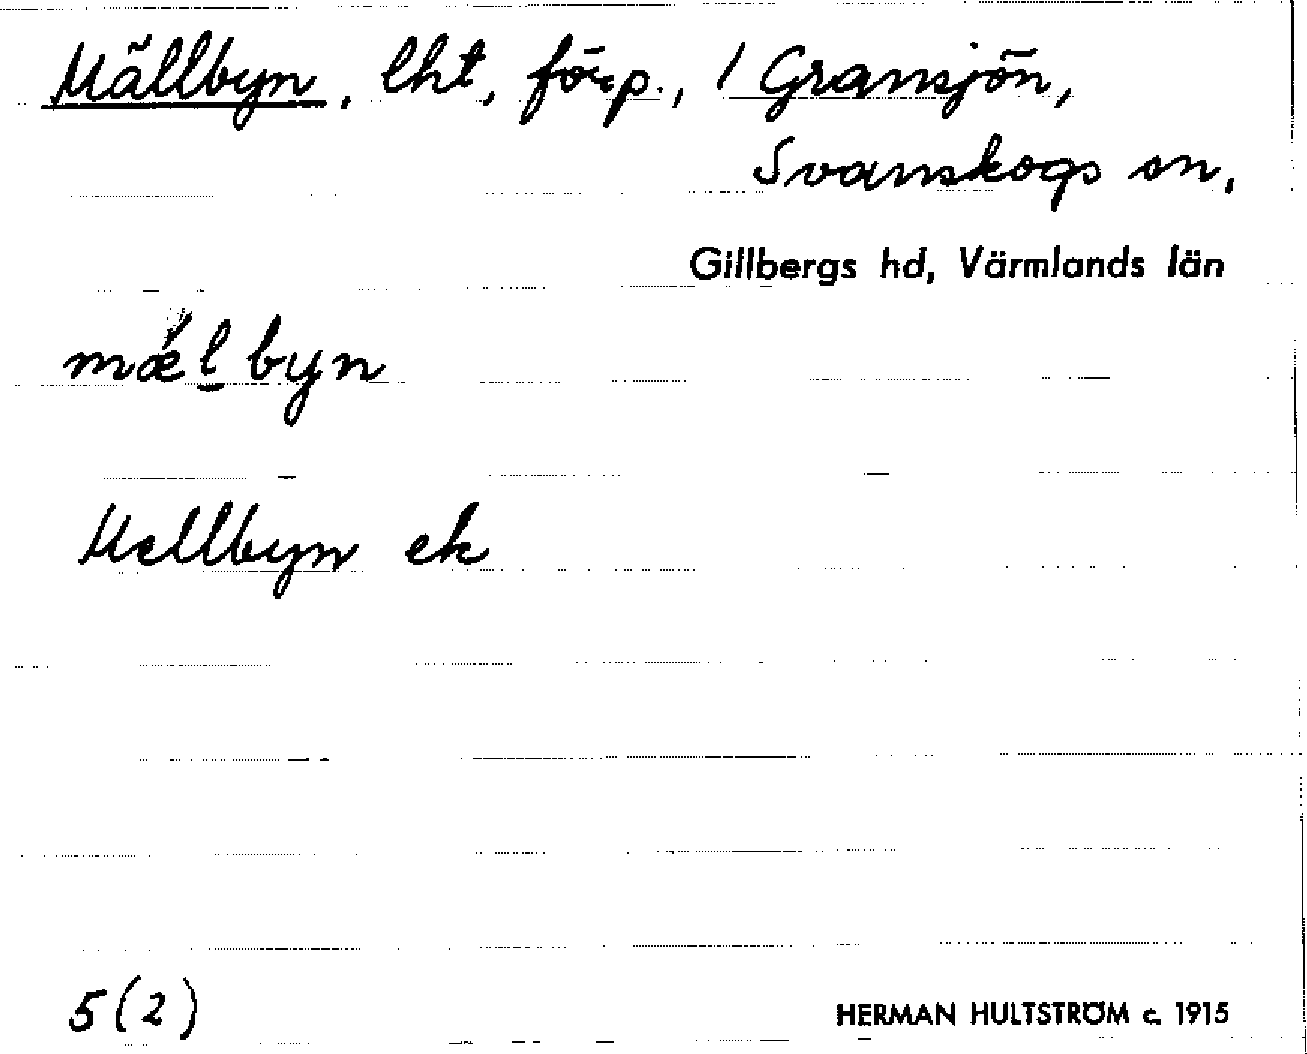 Mällbyn, lht, förp., / Gransjön,
Svanskogs sn,
Gillbergs hd, Värmlands län
mǽl̠byn
Mellbyn ek
5(2)
HERMAN HULTSTRÖM c. 1915